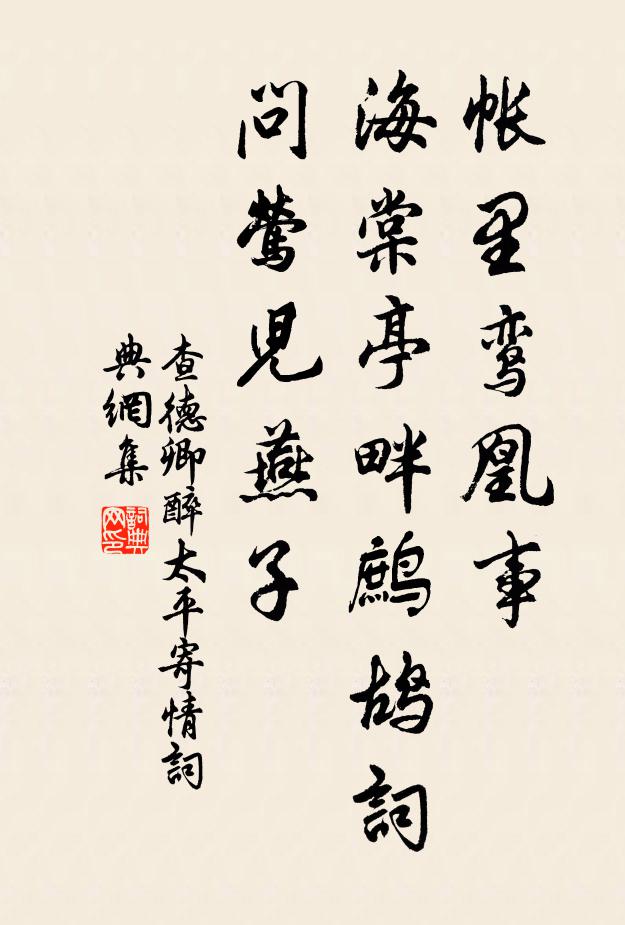 帐里鸾凰事
海棠亭畔鹧鸪詞
問鶯児燕子
查德卿醉太平寄情詞
典網集
詞典网印